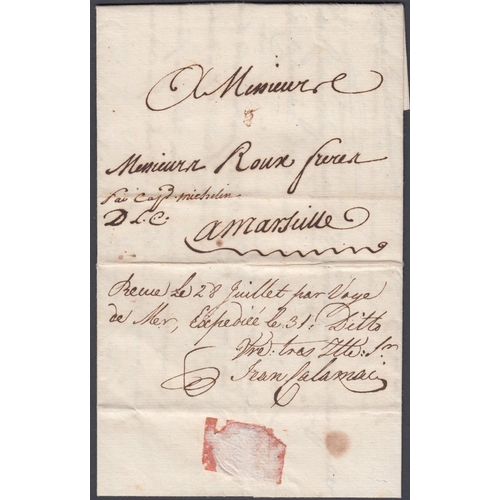 A Messieurs
Messieurs Roux freres
Par Capn. michelin
D L.C.
a marseille
Recue Le 28 Juillet par Voye
de Mer, Expediée le 31. Ditto
Vre: tres
Jean Calamai